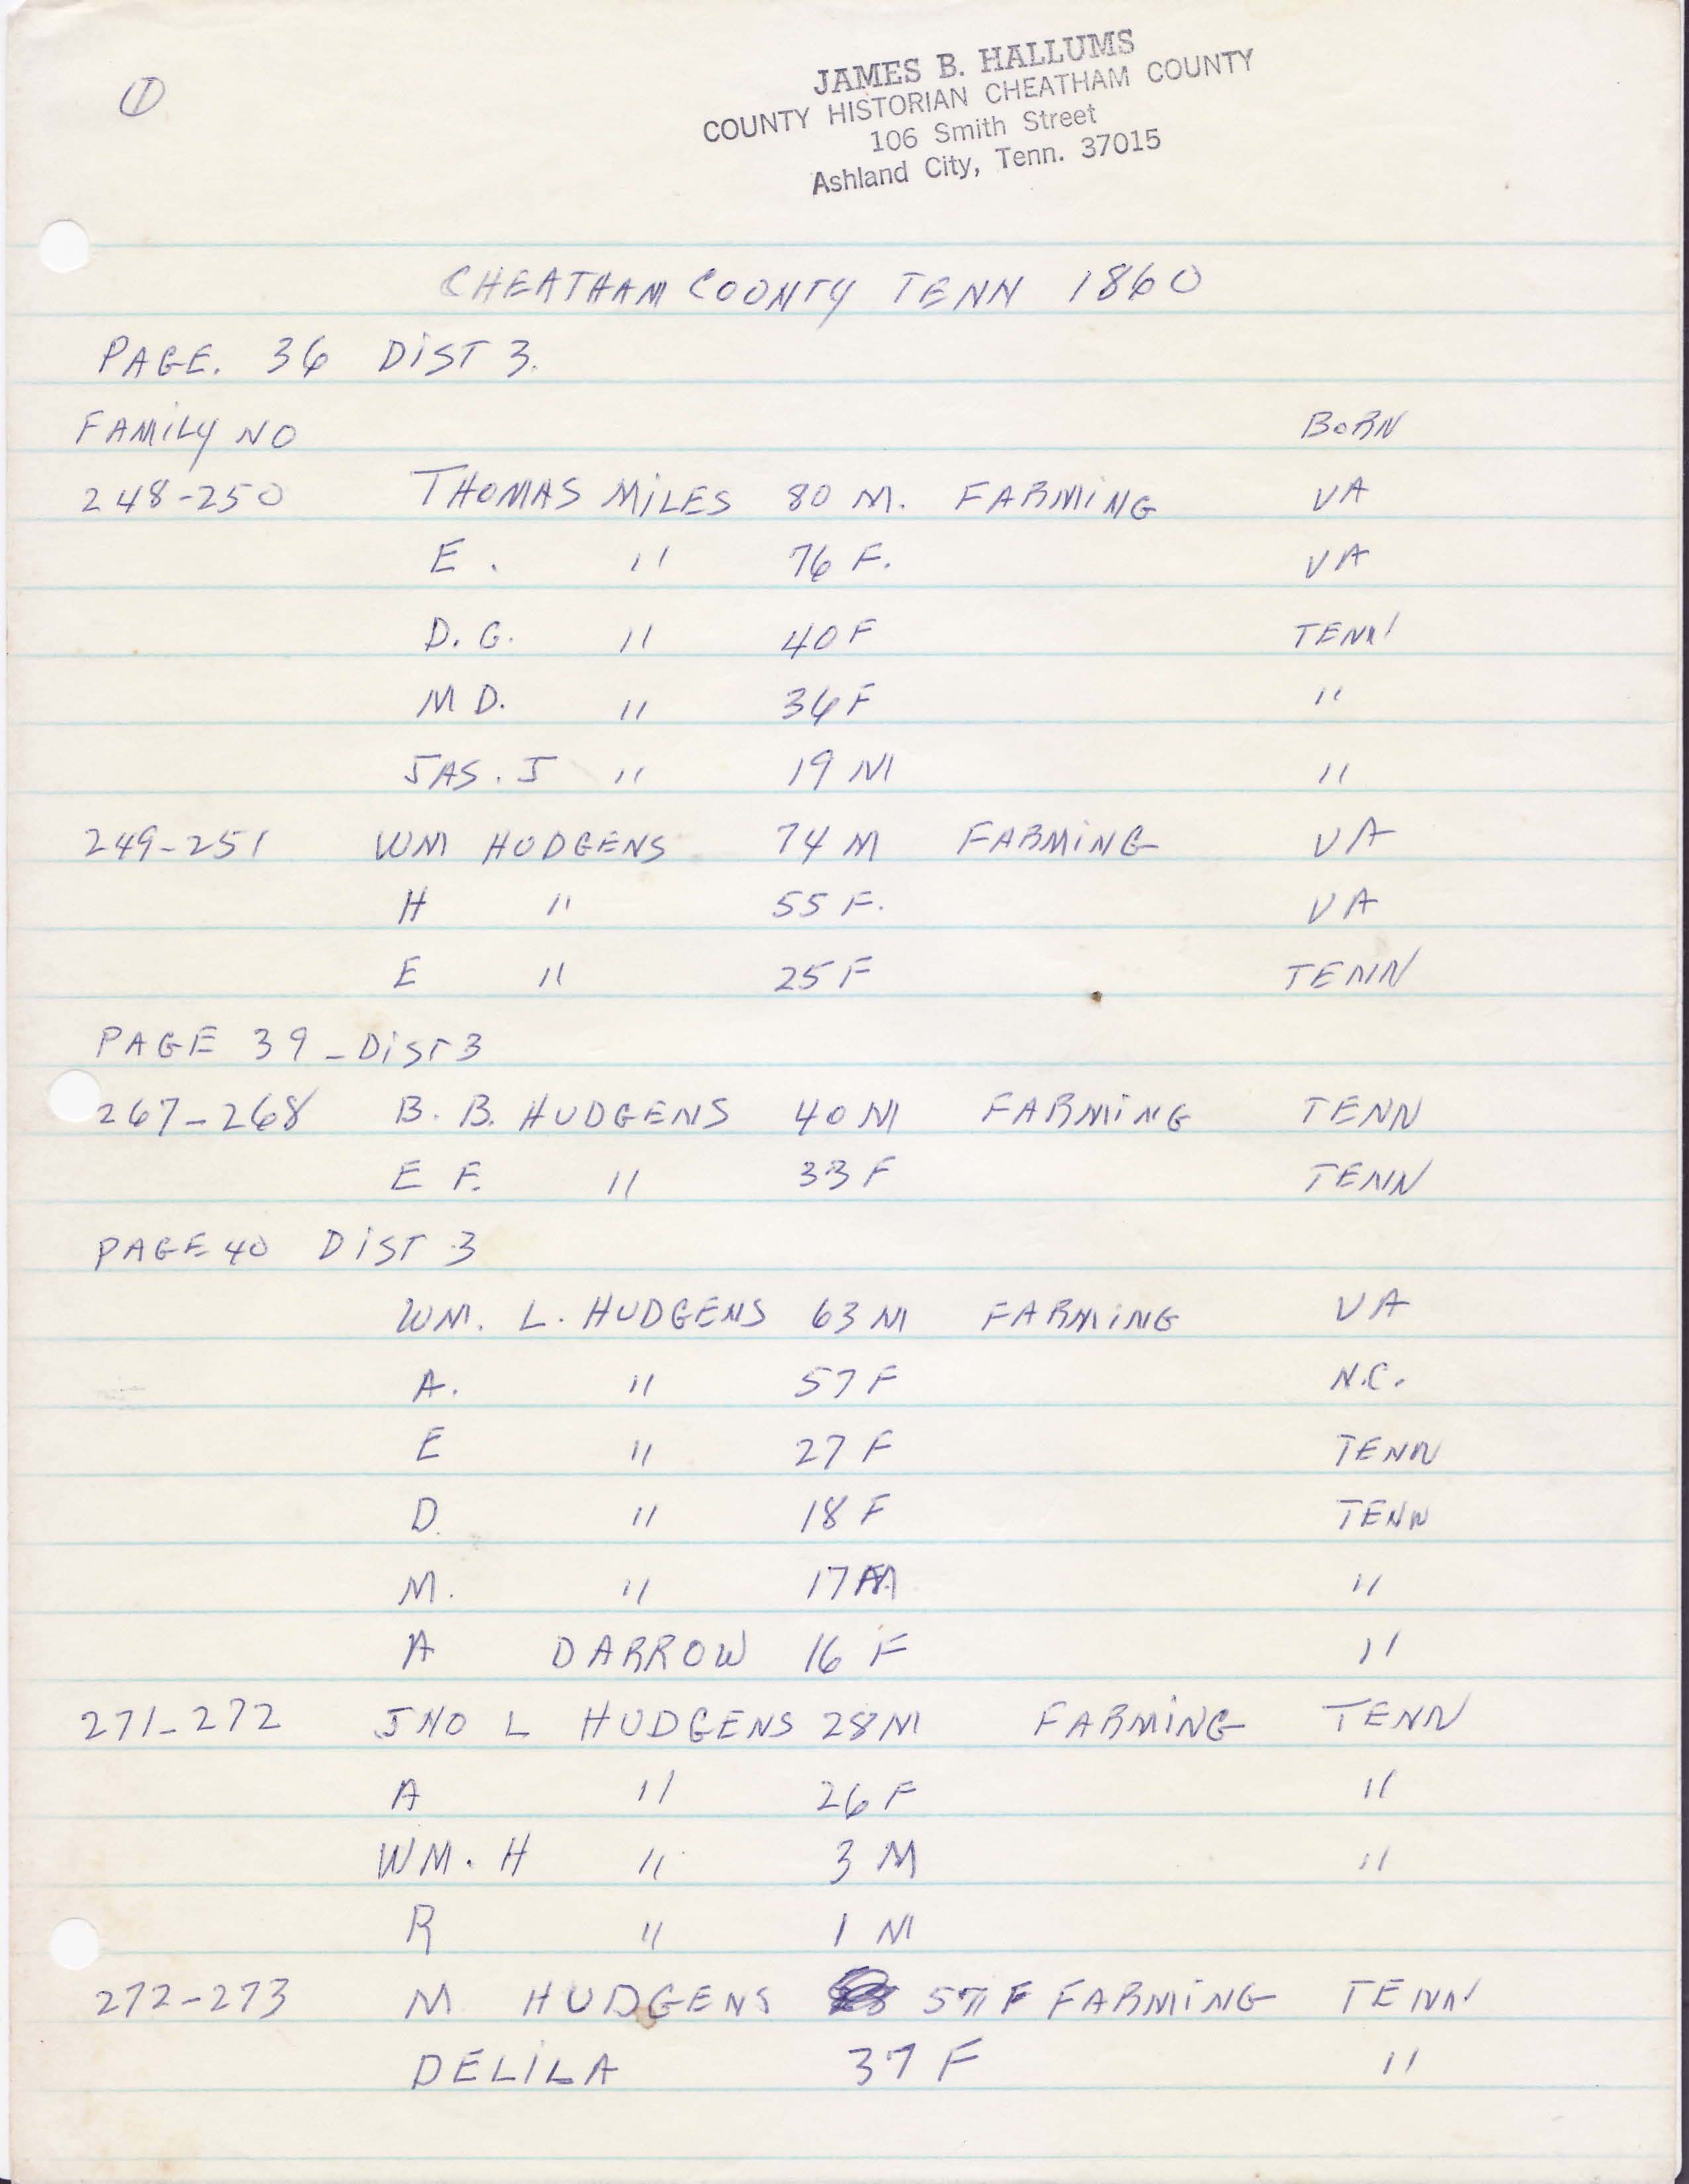 ①
JAMES B. HALLUMS
COUNTY HISTORIAN CHEATHAM COUNTY
106 Smith Street
Ashland City, Tenn. 37015
CHEATHAM COUNTY TENN 1860
PAGE. 36 DIST 3.
FAMILY NO BORN
248-250 THOMAS MILES 80 M. FARMING VA
E. " 76 F. VA
D. G. " 40 F TENN
M D. " 36 F "
JAS. J " 19 M "
249-251 WM HUDGENS 74 M FARMING VA
H " 55 F. VA
E " 25 F TENN
PAGE 39 - DIST 3
267-268 B. B. HUDGENS 40 M FARMING TENN
E F. " 33 F TENN
PAGE 40 DIST 3
WM. L. HUDGENS 63 M FARMING VA
A. " 57 F N.C.
E " 27 F TENN
D. " 18 F TENN
M. " 17 M "
A DARROW 16 F "
271-272 JNO L HUDGENS 28 M FARMING TENN
A " 26 F "
WM. H " 3 M "
R " 1 M
272-273 M HUDGENS F FARMING TENN
DELILA 37 F "